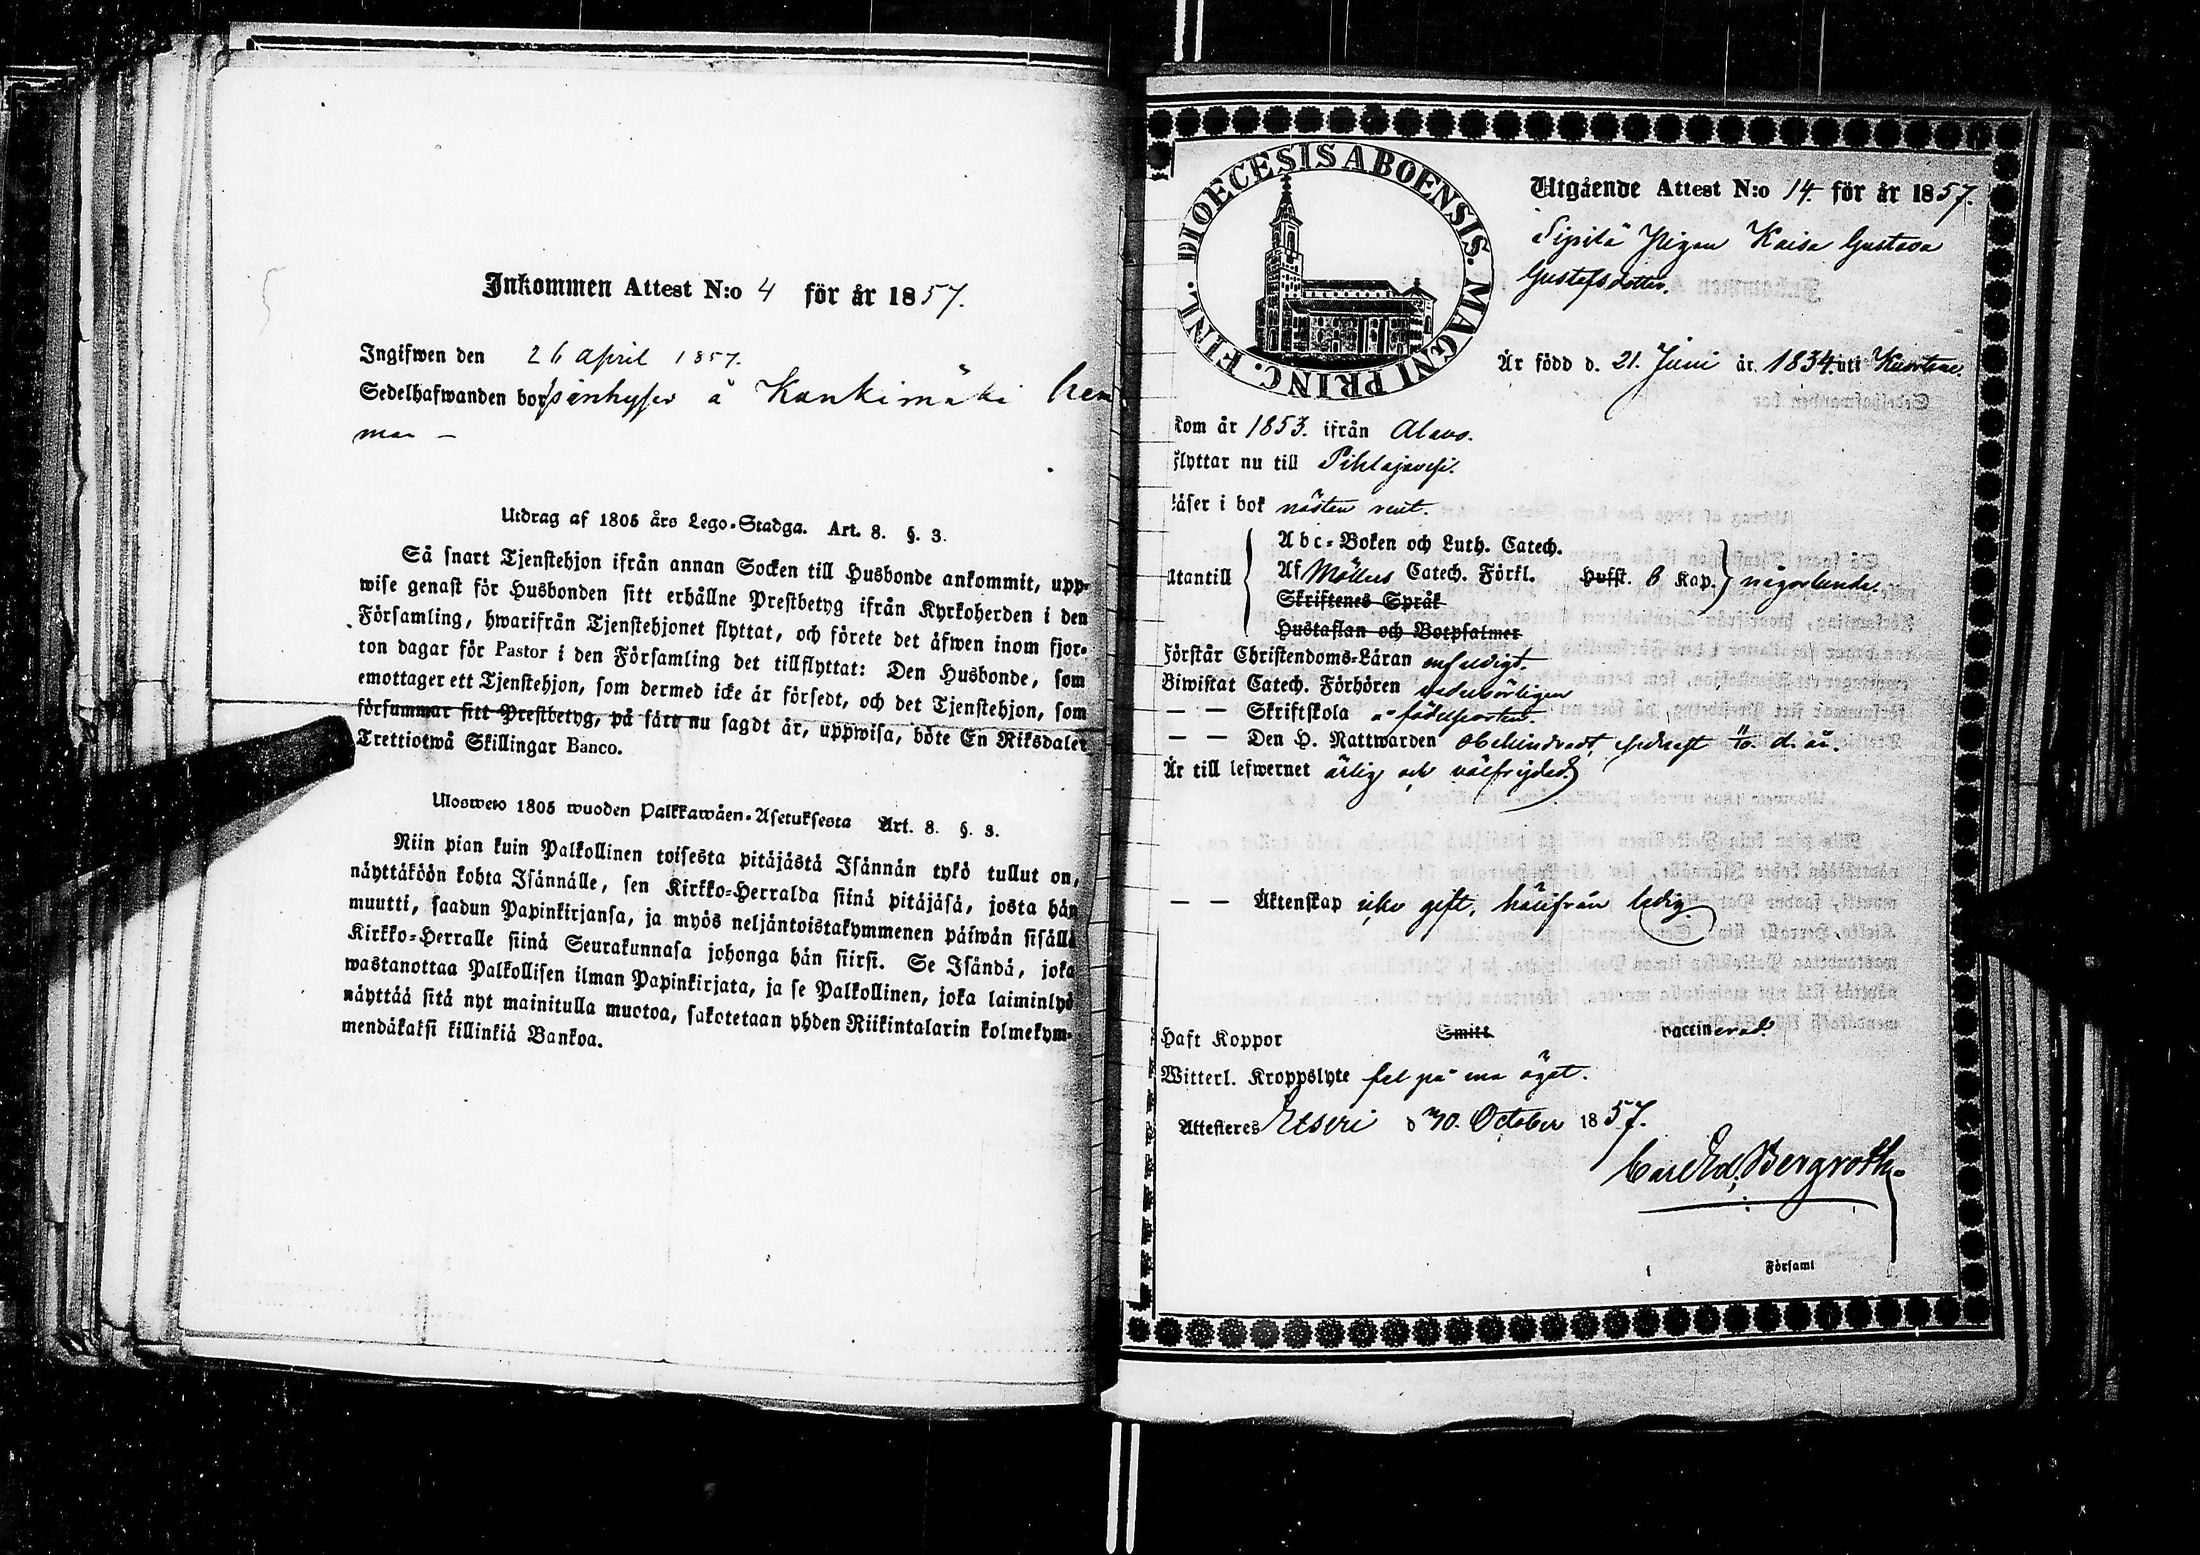 Inkommen Attest N:o 4 för år 1857.
Ingifwen den 26 april 1857.
Sedelhafwanden bor såsom inhyses å Kankimäki hem
man –
Utdrag af 1805 års Lego-Stadga. Art. 8. §. 3.
Så snart Tjenstehjon ifrån annan Socken till Husbonde ankommit, upp-
wise genast för Husbonden sitt erhållne Prestbetyg ifrån Kyrkoherden i den
Församling, hwarifrån Tjenstehjonet flyttat, och förete det äfwen inom fjor-
ton dagar för Pastor i den Församling det tillflyttat: Den Husbonde, som
emottager ett Tjenstehjon, som dermed icke är försedt, och det Tjenstehjon, som
försummar sitt Prestbetyg, på sätt nu sagdt är, uppwisa, böte En Riksdaler
Trettiotwå Skillingar Banco.
Ulosweto 1805 wuoden Palkkawäen-Asetuksesta Art. 8. §. 3.
Niin pian kuin Palkollinen toisesta pitäjästä Isännän tykö tullut on,
näyttäköön kohta Isännälle, sen Kirkko-Herralda siinä pitäjäsä, josta hän
muutti, saadun Papinkirjansa, ja myös neljäntoistakymmenen päiwän sisällä
Kirkko-Herralle siinä Seurakunnasa johonga hän siirsi. Se Isändä, joka
wastanottaa Palkollisen ilman Papinkirjata, ja se Palkollinen, joka laiminlyö
näyttää sitä nyt mainitulla muotoa, sakotetaan yhden Riikintalarin kolmekym-
mendäkaksi killinkiä Bankoa.
DIOECESIS ABOENSIS. MAGNI PRINC. FINL.
Utgående Attest N:o 14. för år 1857.
Sipilä Pigan Kaisa Gustava
Gustafsdotter.
Är född d. 21. Juni år 1834 uti Kuortane.
kom år 1853. ifrån Alavo.
flyttar nu till Pihlajavesi.
läser i bok nästen rent.
Utantill
Abc-Boken och Luth. Catech.
Af Möllers Catech. Förkl. Husst. 6 Kap. någorlunda.
Skriftenes Språk
Hustaflan och Botpsalmer
Förstår Christendoms-Läran enfaldigt.
Biwistat Catech. Förhören vederbörligen
— — Skriftskola å födelseorten.
— — Den H. Nattwarden obehindradt, sednast 11/10. d. år.
Är till lefwernet ärlig och välfrejdad
— — Äktenskap icke gift, härifrån ledig.
Haft Koppor Smitt. vaccinerad
Witterl. Kroppslyte fel på ena ögat.
Attesteres Etseri d 30. October 1857.
Carl Ed. Bergroth.
Församl